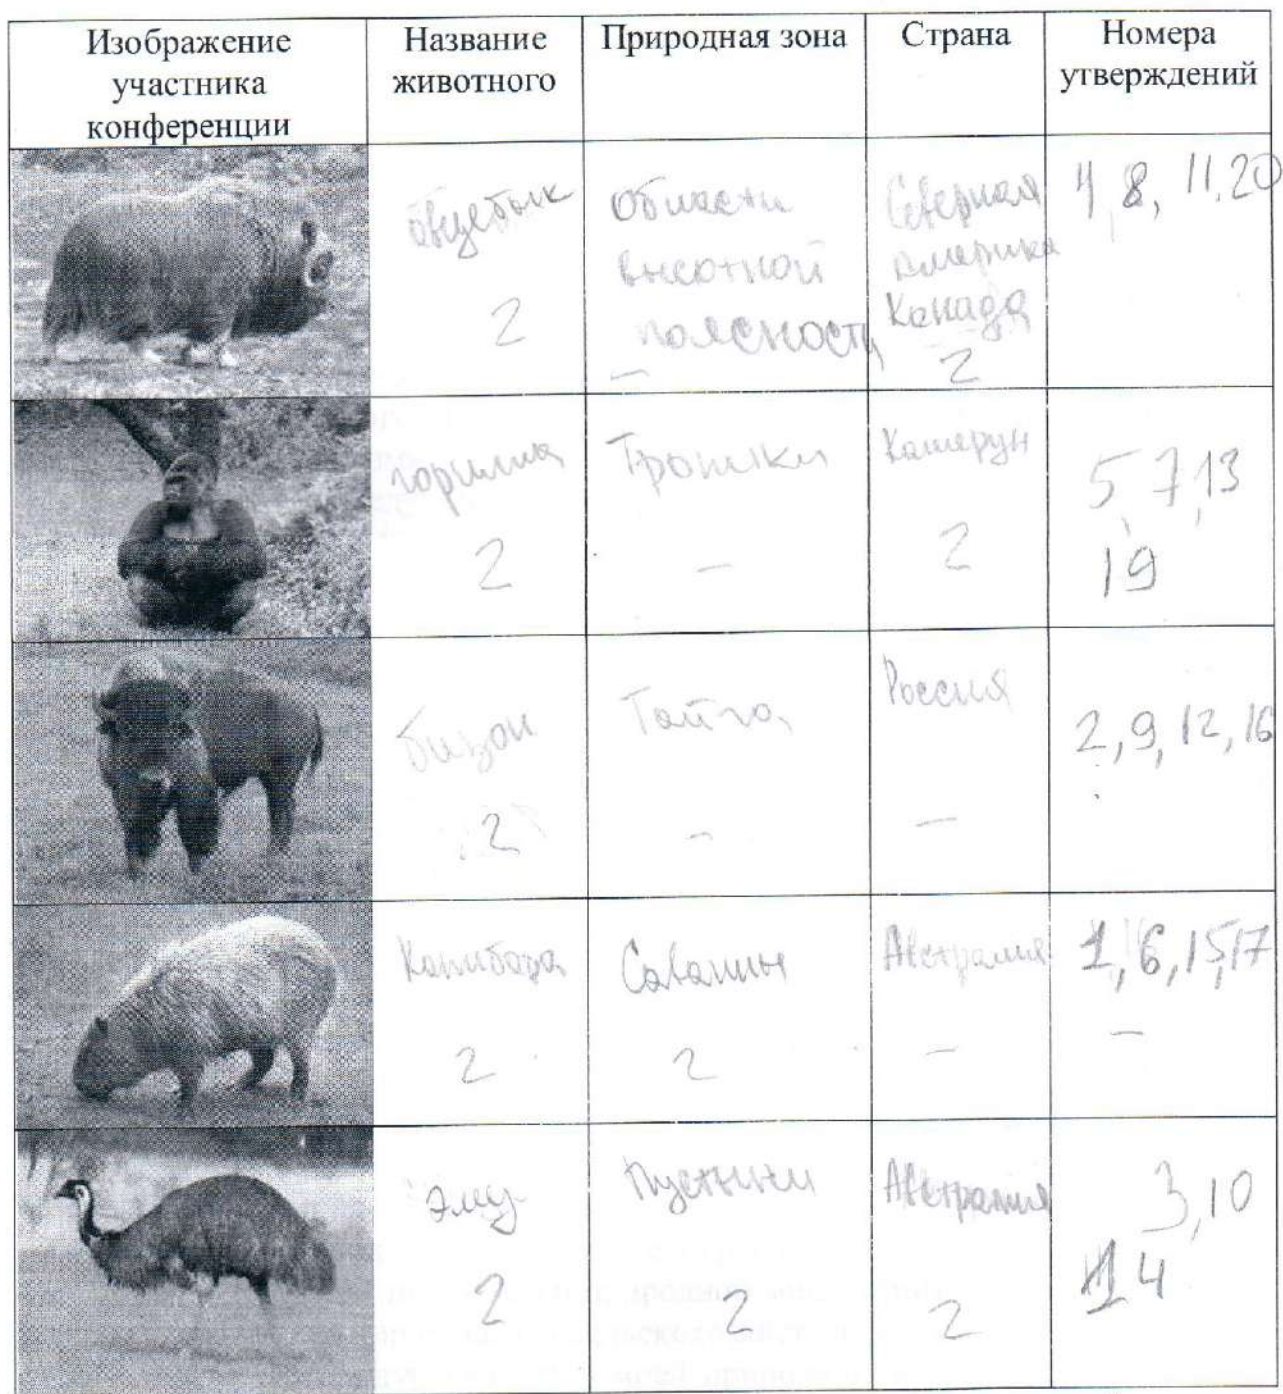 Изображение
участника
конференции
Название
животного
Природная зона
Страна
Номера
утверждений
овцебык
2
Области
высотной
поясности
—
Северная
Америка
Канада
2
4, 8, 11, 20
горилла
2
Тропики
—
Камерун
2
5, 7, 13
19
бизон
2
Тайга
—
Россия
—
2, 9, 12, 16
Капибара
2
Саванны
2
Австралия
—
1, 6, 15, 17
—
Эму
2
Пустыни
2
Австралия
2
3, 10
14